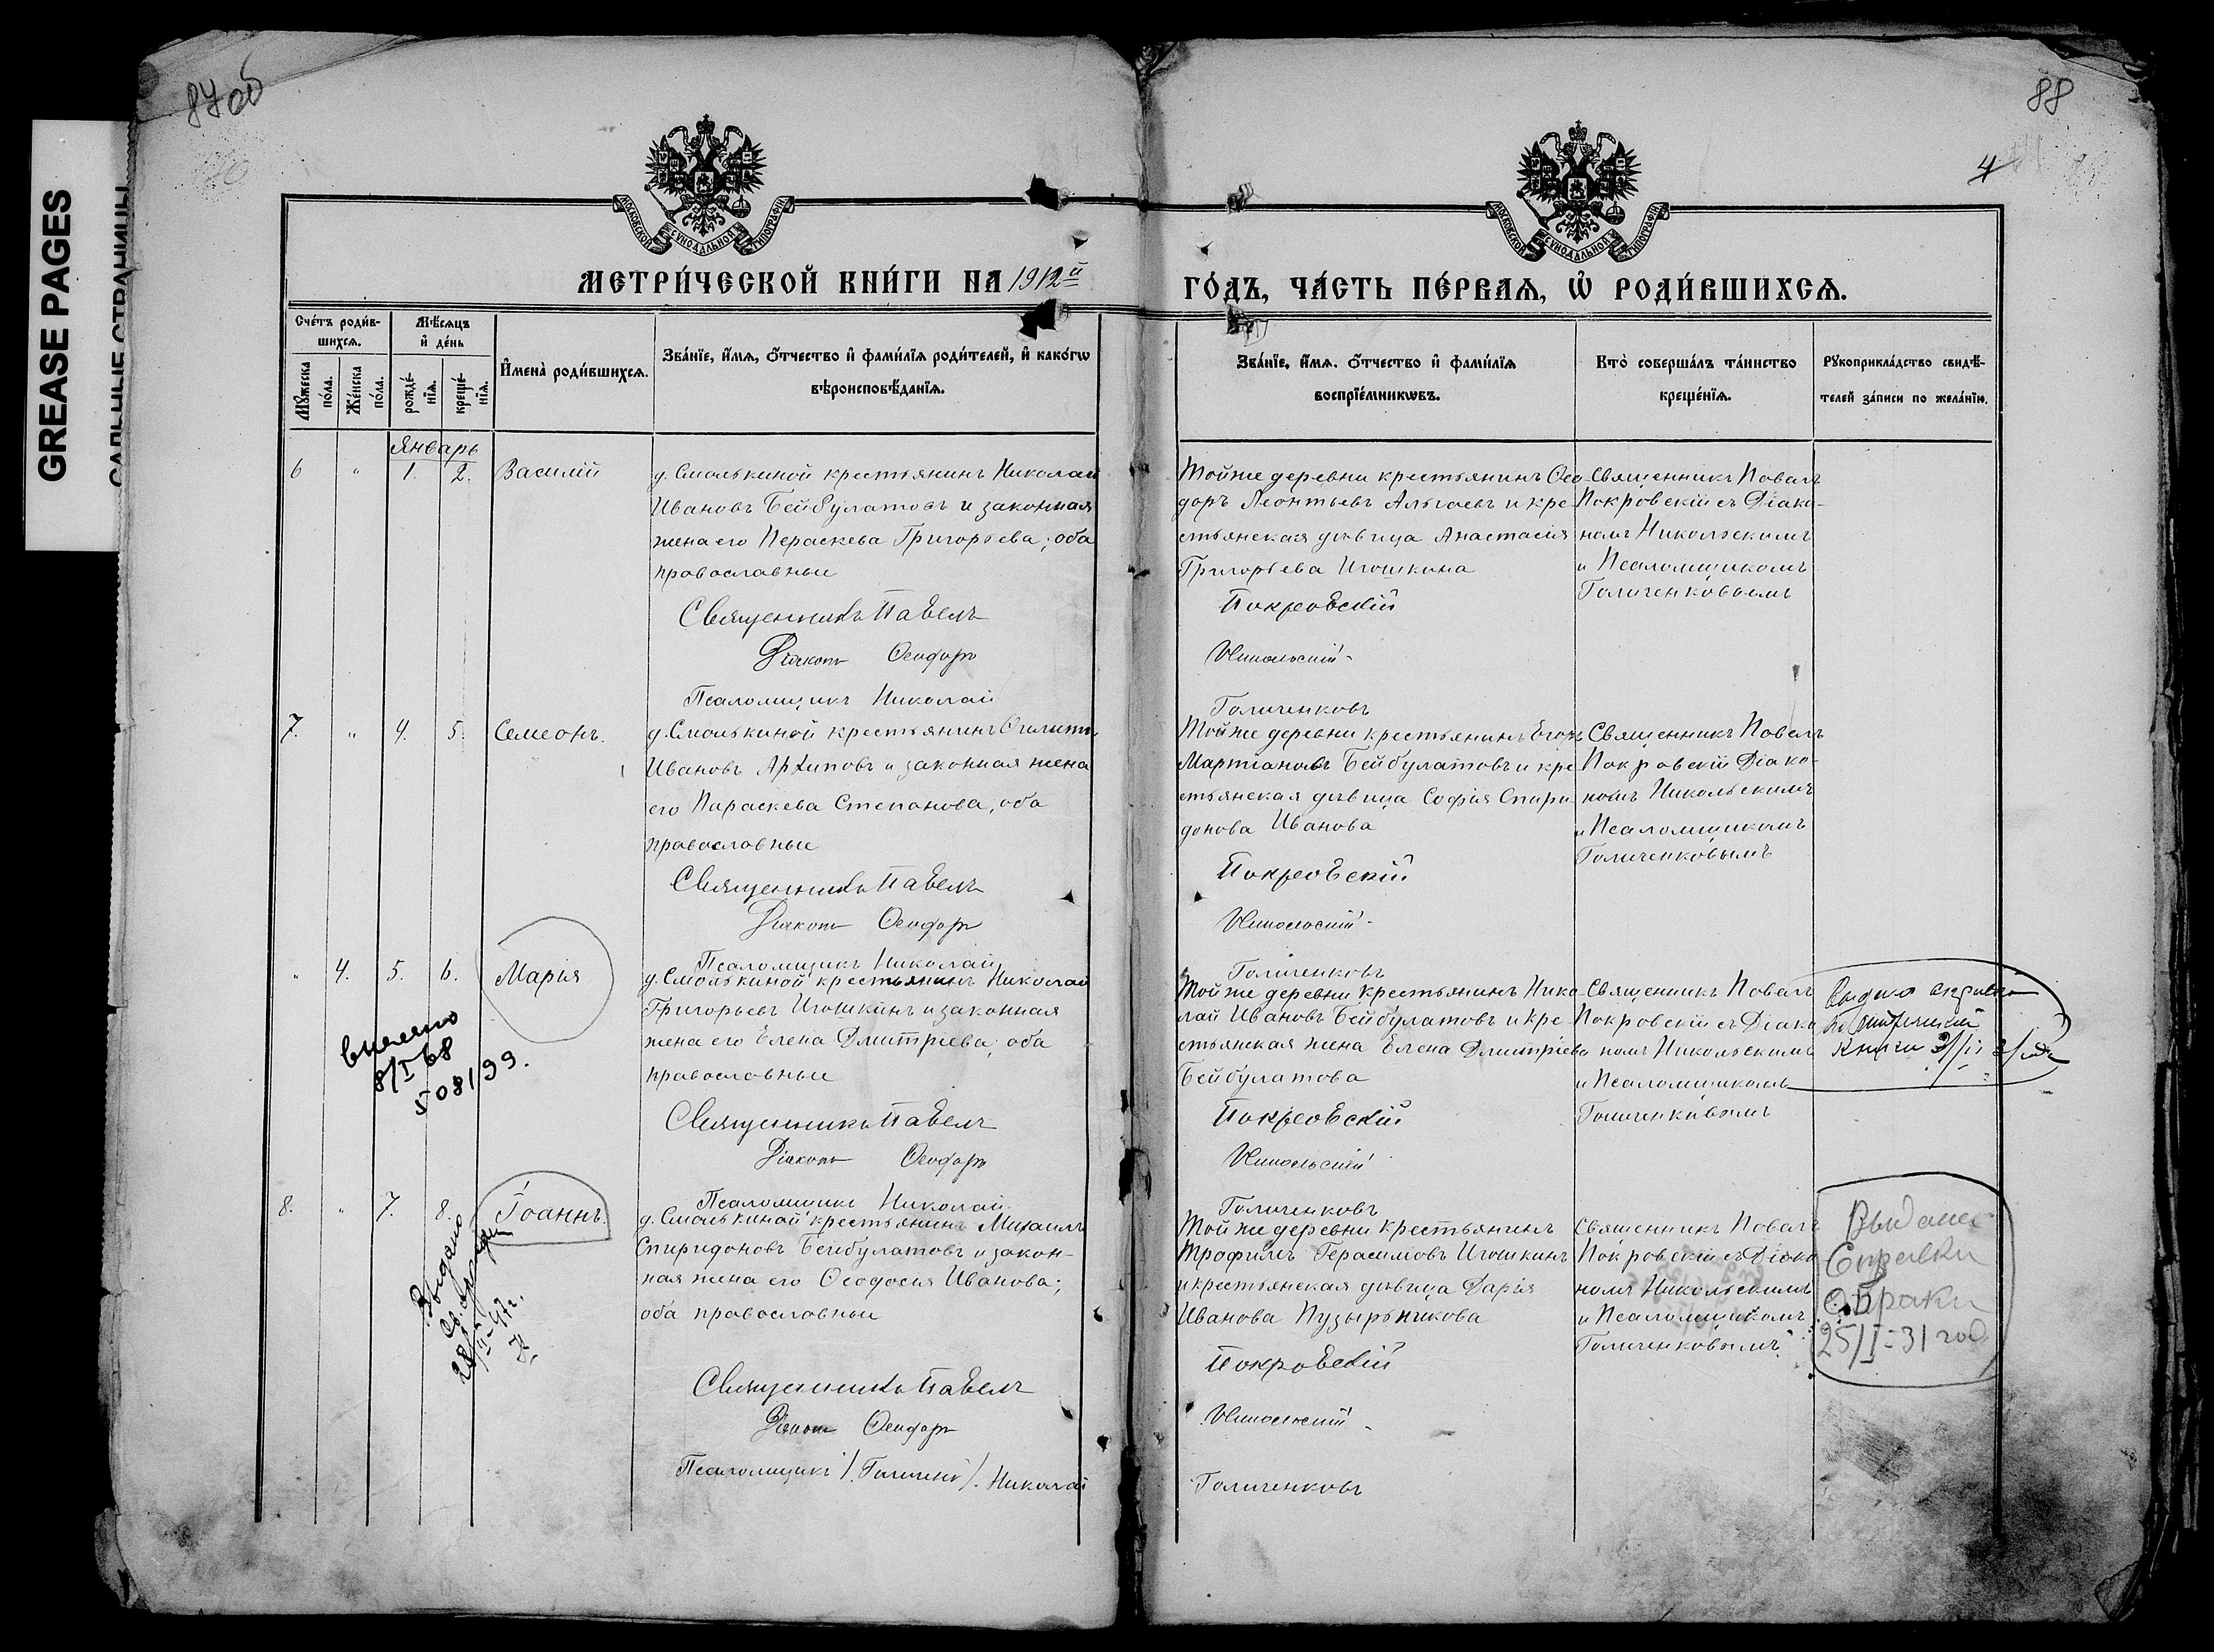 GREASE PAGES
САЛЬНЫЕ СТРАНИЦЫ
87об
88
4
МОСКОВСКОЙ СѴНОДАЛЬНОЙ ТИПОГРАФІИ
МОСКОВСКОЙ СѴНОДАЛЬНОЙ ТИПОГРАФІИ
МЕТРИ́ЧЕСКОЙ КНИ́ГИ НА 1912й
ГО́ДЪ, ЧА́СТЬ ПЕ́РВАЯ, Ѡ҆ РОДИ́ВШИХСЯ.
Сче́тъ роди́в-
шихсѧ.
Мꙋ́жеска
по́ла.
Же́нска
по́ла.
Мѣ́сѧцъ
и҆ де́нь
рожде́-
нїѧ.
креще́-
нїѧ.
И҆мена̀ роди́вшихсѧ.
Зва́нїе, и҆́мѧ, ѻ҆́тчество и҆ фами́лїѧ роди́телей, и҆ како́гѡ
вѣроисповѣ́данїѧ.
Зва́нїе, и҆́мѧ, ѻ҆́тчество и҆ фами́лїѧ
воспрїе́мникѡвъ.
Кто̀ соверша́лъ та́инство
креще́нїѧ.
Рꙋкоприкла́дство свидѣ́-
телей за́писи по жела́нїю.
Январь
6 " 1. 2. Василій
д. Смолькиной крестьянинъ Николай
Ивановъ Бейбулатовъ и законная
жена его Пераскева Григорьева; оба
православные
Священникъ Павелъ
Діаконъ Ѳеодоръ
Псаломщикъ Николай
Тойже деревни крестьянинъ Ѳео-
доръ Леонтьевъ Альгаевъ и кре-
стьянская дѣвица Анастасія
Григорьева Игошкина
Покровскій
Никольскій
Голиченковъ
Священникъ Павелъ
Покровскій съ Діако-
номъ Никольскимъ
и Псаломщикомъ
Голиченковымъ
7. " 4. 5. Симеонъ.
д. Смолькиной крестьянинъ Филиппъ
Ивановъ Архиповъ и законная жена
его Параскева Степанова, оба
православные
Священникъ Павелъ
Діаконъ Ѳеодоръ
Псаломщикъ Николай
Тойже деревни крестьянинъ Егоръ
Мартіановъ Бейбулатовъ и кре-
стьянская дѣвица Софія Спири-
донова Иванова
Покровскій
Никольскій
Голиченковъ
Священникъ Павелъ
Покровскій Діако-
номъ Никольскимъ
и Псаломщикомъ
Голиченковымъ
" 4. 5. 6. Марія
8/I 68
508199.
д. Смолькиной крестьянинъ Николай
Григорьевъ Игошкинъ и законная
жена его Елена Дмитріева; оба
православные
Священникъ Павелъ
Діаконъ Ѳеодоръ
Псаломщикъ Николай
Тойже деревни крестьянинъ Нико-
лай Ивановъ Бейбулатовъ и кре-
стьянская жена Елена Дмитріева
Бейбулатова
Покровскій
Никольскій
Голиченковъ
Священникъ Павелъ
Покровскій съ Діако
номъ Никольскимъ
и Псаломщикомъ
Голиченковымъ
книги
8. " 7. 8. Іоаннъ.
Выдано
д. Смолькиной крестьянинъ Михаилъ
Спиридоновъ Бейбулатовъ и закон-
ная жена его Ѳеодосія Иванова;
оба православные
Священникъ Павелъ
Діаконъ Ѳеодоръ
Псаломщикъ /. Голичені /. Николай
Тойже деревни крестьянинъ
Трофимъ Герасимовъ Игошкинъ
и крестьянская дѣвица Дарія
Иванова Пузырьникова
Покровскій
Никольскій
Голиченковъ
Священникъ Павелъ
Покровскій съ Діако
номъ Никольскимъ
и Псаломщикомъ
Голиченковымъ.
Выдана
Справки
О браки
25/I-31 год